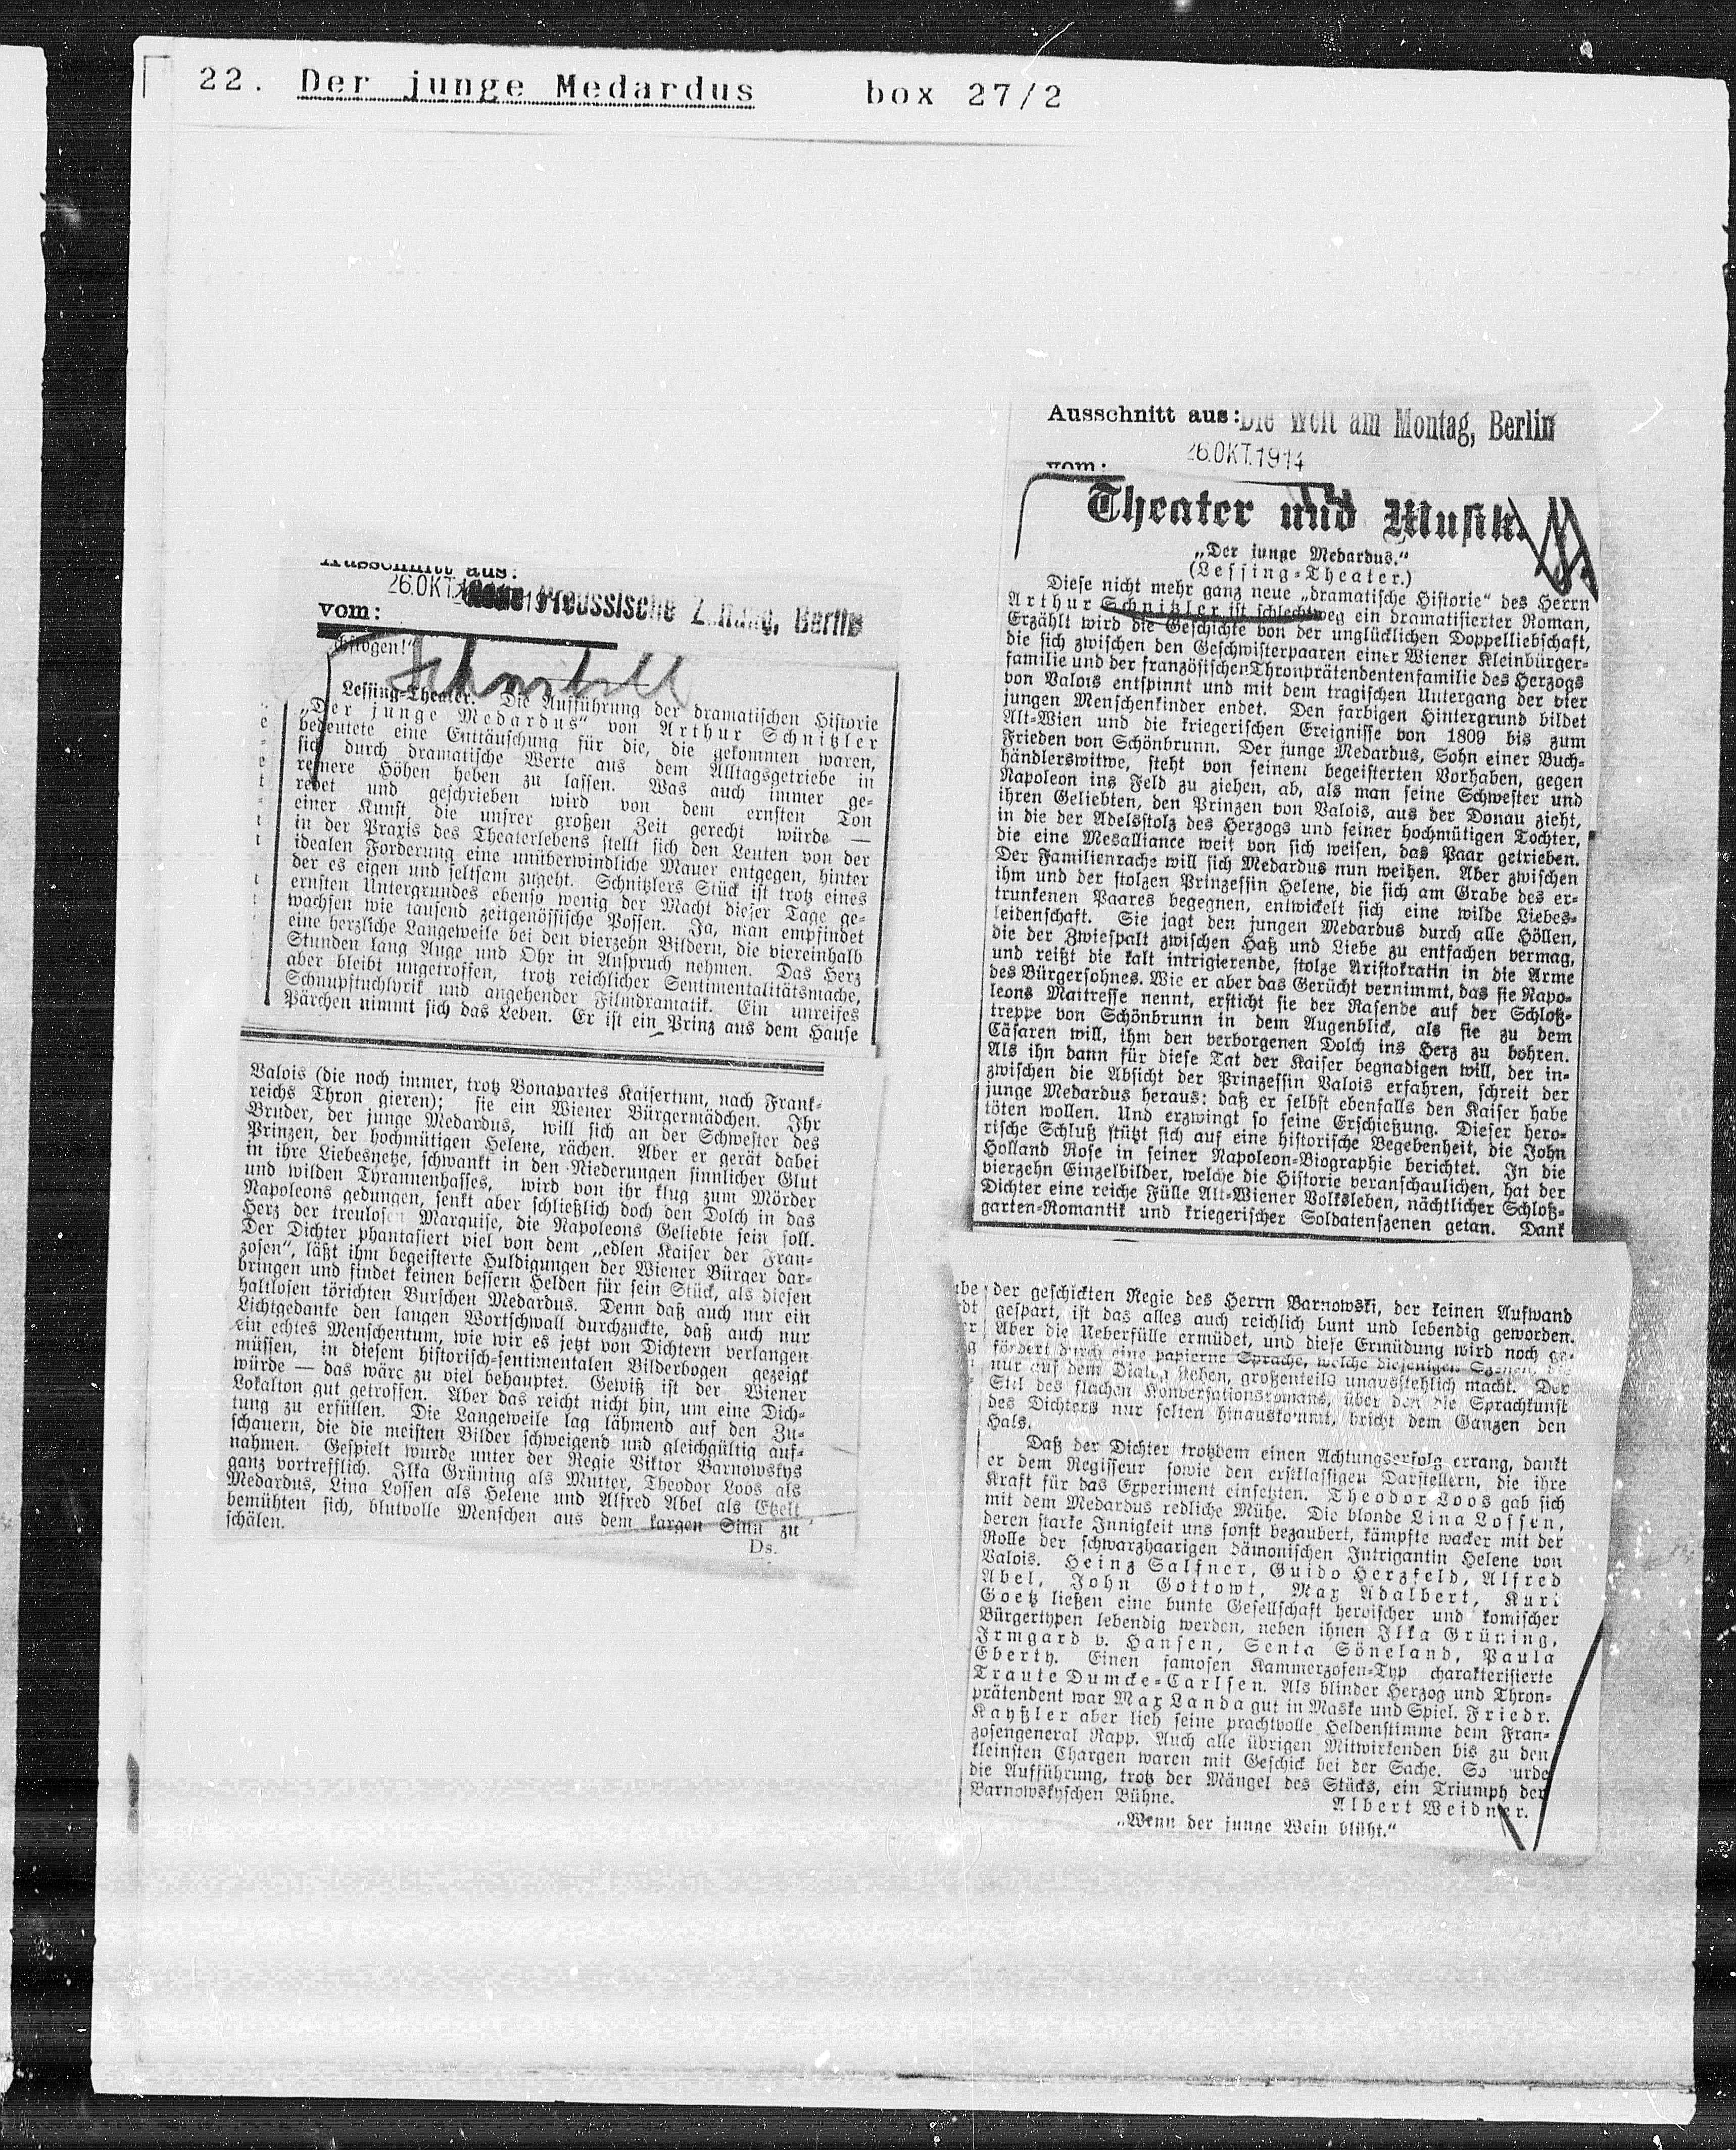 22. Der junge Medardus box 27/2
Ausschnitt aus:
26.OKT.191
Preussische Zeitung, Berlin
vom:
Lessing-Theater. Die Aufführung der dramatischen Historie
„Der junge Medardus“ von Arthur Schnitzler
bedeutete eine Enttäuschung für die, die gekommen waren,
sich durch dramatische Werte aus dem Alltagsgetriebe in
reinere Höhen heben zu lassen. Was auch immer ge-
redet und geschrieben wird von dem ernsten Ton
einer Kunst die unsrer großen Zeit gerecht würde —
in der Praxis des Theaterlebens stellt sich den Leuten von der
idealen Forderung eine unüberwindliche Mauer entgegen, hinter
der es eigen und seltsam zugeht. Schnitzlers Stück ist trotz eines
ernsten Untergrundes ebenso wenig der Macht dieser Tage ge-
wachsen wie tausend zeitgenössische Possen. Ja, man empfindet
eine herzliche Langeweile bei den vierzehn Bildern, die viereinhalb
Stunden lang Auge und Ohr in Anspruch nehmen. Das Herz
aber bleibt ungetroffen, trotz reichlicher Sentimentalitätsmache,
Schnupftuchlyrik und angehender Filmdramatik. Ein unreifes
Pärchen nimmt sich das Leben. Er ist ein Prinz aus dem Hause
Valois (die noch immer, trotz Bonapartes Kaisertum, nach Frank-
reichs Thron gieren); sie ein Wiener Bürgermädchen. Ihr
Bruder, der junge Medardus, will sich an der Schwester des
Prinzen, der hochmütigen Helene, rächen. Aber er gerät dabei
in ihre Liebesnetze, schwankt in den Niederungen sinnlicher Glut
und wilden Tyrannenhasses, wird von ihr klug zum Mörder
Napoleons gedungen, senkt aber schließlich doch den Dolch in das
Herz der treulosen Marquise, die Napoleons Geliebte sein soll.
Der Dichter phantasiert viel von dem „edlen Kaiser der Fran-
zosen“, läßt ihm begeisterte Huldigungen der Wiener Bürger dar-
bringen und findet keinen bessern Helden für sein Stück, als diesen
haltlosen törichten Burschen Medardus. Denn daß auch nur ein
Lichtgedanke den langen Wortschwall durchzuckte, daß auch nur
ein echtes Menschentum, wie wir es jetzt von Dichtern verlangen
müssen, in diesem historisch-sentimentalen Bilderbogen gezeigt
würde — das wäre zu viel behauptet. Gewiß ist der Wiener
Lokalton gut getroffen. Aber das reicht nicht hin, um eine Dich-
tung zu erfüllen. Die Langeweile lag lähmend auf den Zu-
schauern, die die meisten Bilder schweigend und gleichgültig auf-
nahmen. Gespielt wurde unter der Regie Viktor Barnowskys
ganz vortrefflich. Ilka Grüning als Mutter, Theodor Loos als
Medardus, Lina Lossen als Helene und Alfred Abel als Etzelt
bemühten sich, blutvolle Menschen aus dem kargen Sinn zu
schälen.
Ds.
Ausschnitt aus: Die Welt am Montag, Berlin
26.OKT.1914
vom:
Theater und Musik.
„Der junge Medardus.“
(Lessing-Theater.)
Diese nicht mehr ganz neue „dramatische Historie“ des Herrn
Arthur Schnitzler ist schlechtweg ein dramatisierter Roman,
Erzählt wird die Geschichte von der unglücklichen Doppelliebschaft,
die sich zwischen den Geschwisterpaaren einer Wiener Kleinbürger-
familie und der französischen Thronprätendentenfamilie des Herzogs
von Valois entspinnt und mit dem tragischen Untergang der vier
jungen Menschenkinder endet. Den farbigen Hintergrund bildet
Alt-Wien und die kriegerischen Ereignisse von 1809 bis zum
Frieden von Schönbrunn. Der junge Medardus, Sohn einer Buch-
händlerswitwe, steht von seinem begeisterten Vorhaben, gegen
Napoleon ins Feld zu ziehen, ab, als man seine Schwester und
ihren Geliebten, den Prinzen von Valois, aus der Donau zieht,
in die der Adelsstolz des Herzogs und seiner hochmütigen Tochter,
die eine Mesalliance weit von sich weisen, das Paar getrieben.
Der Familienrache will sich Medardus nun weihen. Aber zwischen
ihm und der stolzen Prinzessin Helene, die sich am Grabe des er-
trunkenen Paares begegnen, entwickelt sich eine wilde Liebes-
leidenschaft. Sie jagt den jungen Medardus durch alle Höllen,
die der Zwiespalt zwischen Haß und Liebe zu entfachen vermag,
und reißt die kalt intrigierende, stolze Aristokratin in die Arme
des Bürgersohnes. Wie er aber das Gerücht vernimmt, das sie Napo-
leons Maitresse nennt, ersticht sie der Rasende auf der Schloß-
treppe von Schönbrunn in dem Augenblick, als sie zu dem
Cäsaren will, ihm den verborgenen Dolch ins Herz zu bohren.
Als ihn dann für diese Tat der Kaiser begnadigen will, der in-
zwischen die Absicht der Prinzessin Valois erfahren, schreit der
junge Medardus heraus: daß er selbst ebenfalls den Kaiser habe
töten wollen. Und erzwingt so seine Erschießung. Dieser hero-
rische Schluß stützt sich auf eine historische Begebenheit, die John
Holland Rose in seiner Napoleon-Biographie berichtet. In die
vierzehn Einzelbilder, welche die Historie veranschaulichen, hat der
Dichter eine reiche Fülle Alt-Wiener Volksleben, nächtlicher Schloß-
garten-Romantik und kriegerischer Soldatenszenen getan. Dank
der geschickten Regie des Herrn Barnowski, der keinen Aufwand
gespart, ist das alles auch reichlich bunt und lebendig geworden.
Aber die Ueberfülle ermüdet, und diese Ermüdung wird noch ge-
fördert durch eine papierne Sprache, welche diejenigen Szenen, die
nur auf dem Dialog stehen, großenteils unausstehlich macht. Der
Stil des flachen Konversationsromans, über den die Sprachkunst
des Dichters nur selten hinauskommt, bricht dem Ganzen den
Hals.
Daß der Dichter trotzdem einen Achtungserfolg errang, dankt
er dem Regisseur sowie den erstklassigen Darstellern, die ihre
Kraft für das Experiment einsetzten. Theodor Loos gab sich
mit dem Medardus redliche Mühe. Die blonde Lina Lossen,
deren starke Innigkeit uns sonst bezaubert, kämpfte wacker mit der
Rolle der schwarzhaarigen dämonischen Intrigantin Helene von
Valois. Heinz Salfner, Guido Herzfeld, Alfred
Abel, John Gottowt, Max Adalbert, Kurt
Goetz ließen eine bunte Gesellschaft heroischer und komischer
Bürgertypen lebendig werden, neben ihnen Ilka Grüning,
Irmgard v. Hansen, Senta Söneland, Paula
Eberty. Einen famosen Kammerzofen-Typ charakterisierte
Traute Dumcke-Carlsen. Als blinder Herzog und Thron-
prätendent war Max Landa gut in Maske und Spiel. Friedr.
Kayßler aber lieh seine prachtvolle Heldenstimme dem Fran-
zosengeneral Rapp. Auch alle übrigen Mitwirkenden bis zu den
kleinsten Chargen waren mit Geschick bei der Sache. So wurde
die Aufführung, trotz der Mängel des Stücks, ein Triumph der
Barnowskyschen Bühne.
Albert Weidner.
„Wenn der junge Wein blüht.“